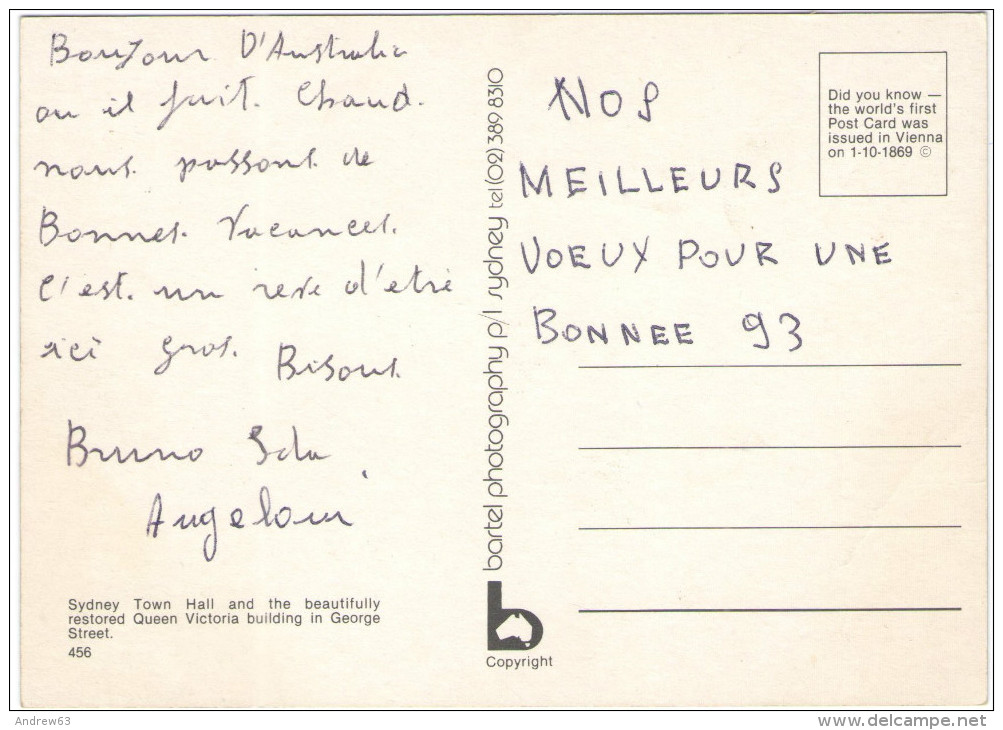 Bonjour D'Australie
ou il fait. Chaud.
nous passons de
Bonnes. Vacances.
C'est. un reve d'etre
ici gros. Bisous
Bruno Ida
Angeloni
Sydney Town Hall and the beautifully
restored Queen Victoria building in George
Street.
456
bartel photography p/l sydney tel(02)389 8310
Copyright
Did you know —
the world's first
Post Card was
issued in Vienna
on 1-10-1869 ©
NOS
MEILLEURS
VOEUX POUR UNE
BONNEE 93
Andrew63
www.delcampe.net